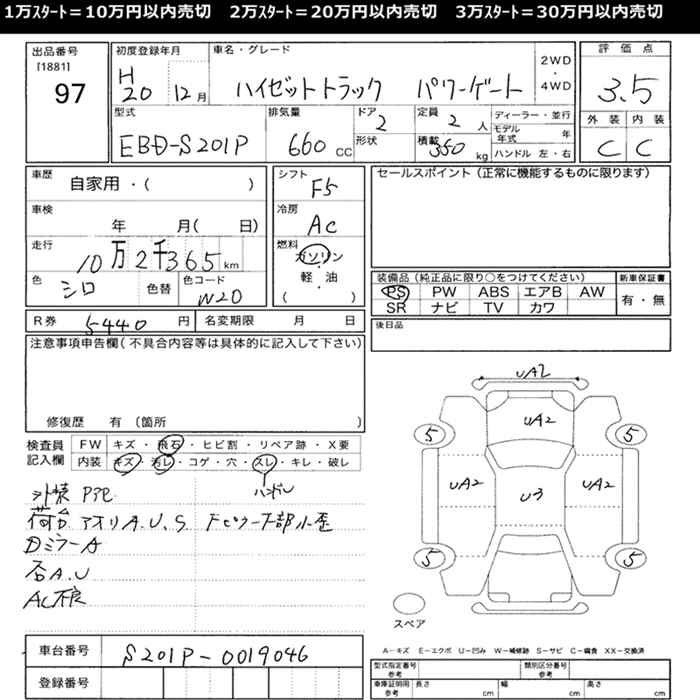 1万スタート＝10万円以内売切　2万スタート＝20万円以内売切　3万スタート＝30万円以内売切
出品番号
[1881]
97
初度登録年月
H
20 12月
車名・グレード
ハイゼットトラック パワーゲート
2WD
・
4WD
評価点
3.5
外装 内装
C C
型式
EBD-S201P
排気量
660 CC
ドア
2
形状
定員
2 人
積載
350 kg
ディーラー・並行
モデル年式 年
ハンドル 左・右
車歴
自家用・( )
車検
年 月( 日)
走行
10万2千365 km
色
シロ
色替
色コード
W20
シフト
F5
冷房
AC
燃料
ガソリン
・
軽油
( )
セールスポイント（正常に機能するものに限ります）
装備品（純正品に限り○をつけてください）
新車保証書
PS PW ABS エアB AW
SR ナビ TV カワ
有・無
後日品
R券 5440 円
名変期限 月 日
注意事項申告欄（不具合内容等は具体的に記入して下さい）
修復歴 有（箇所 ）
検査員
記入欄
FW キズ・飛石・ヒビ割・リペア跡・X要
内装 キズ・汚レ・コゲ・穴・スレ・キレ・破レ
ハンドル
荷台 アオリA.U.S
下部小歪
DミラーA
A.U
AC不良
UA2
UA2
5 5
UA2 U3 UA2
5 5
スペア
A－キズ E－エクボ U－凹み W－補修跡 S－サビ C－腐食 XX－交換済
車台番号
S201P-0019046
登録番号
型式指定番号
参考
類別区分番号
参考
車庫証明用
参考
長さ cm
幅 cm
高さ cm